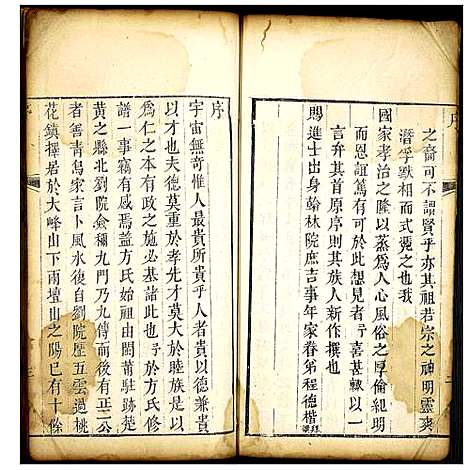 序
之裔可不謂賢乎亦其祖若宗之神明靈爽
潛孚默相而式憑之也我
國家孝治之隆以蒸為人心風俗之厚倫紀明
而恩誼篤有可於此想見者予喜甚輒以一
言弁其首原序則其族人新作撰也
賜進士出身翰林院庶吉事年家眷弟程德楷拜
序
宇宙無奇惟人最貴所貴乎人者貴以德兼貴
以才也夫德莫重於孝先才莫大於睦族是
為仁之本有政之施必基諸此予於方氏修
譜一事竊有感焉蓋方氏始祖由閩莆駐跡於
黃之縣北劉院金禰九門乃九傳而後有正二公
者善青烏家言卜風水復自劉院歷五雲過桃
花鎮擇若於大峰山下雨壇山之陽已有十餘
序